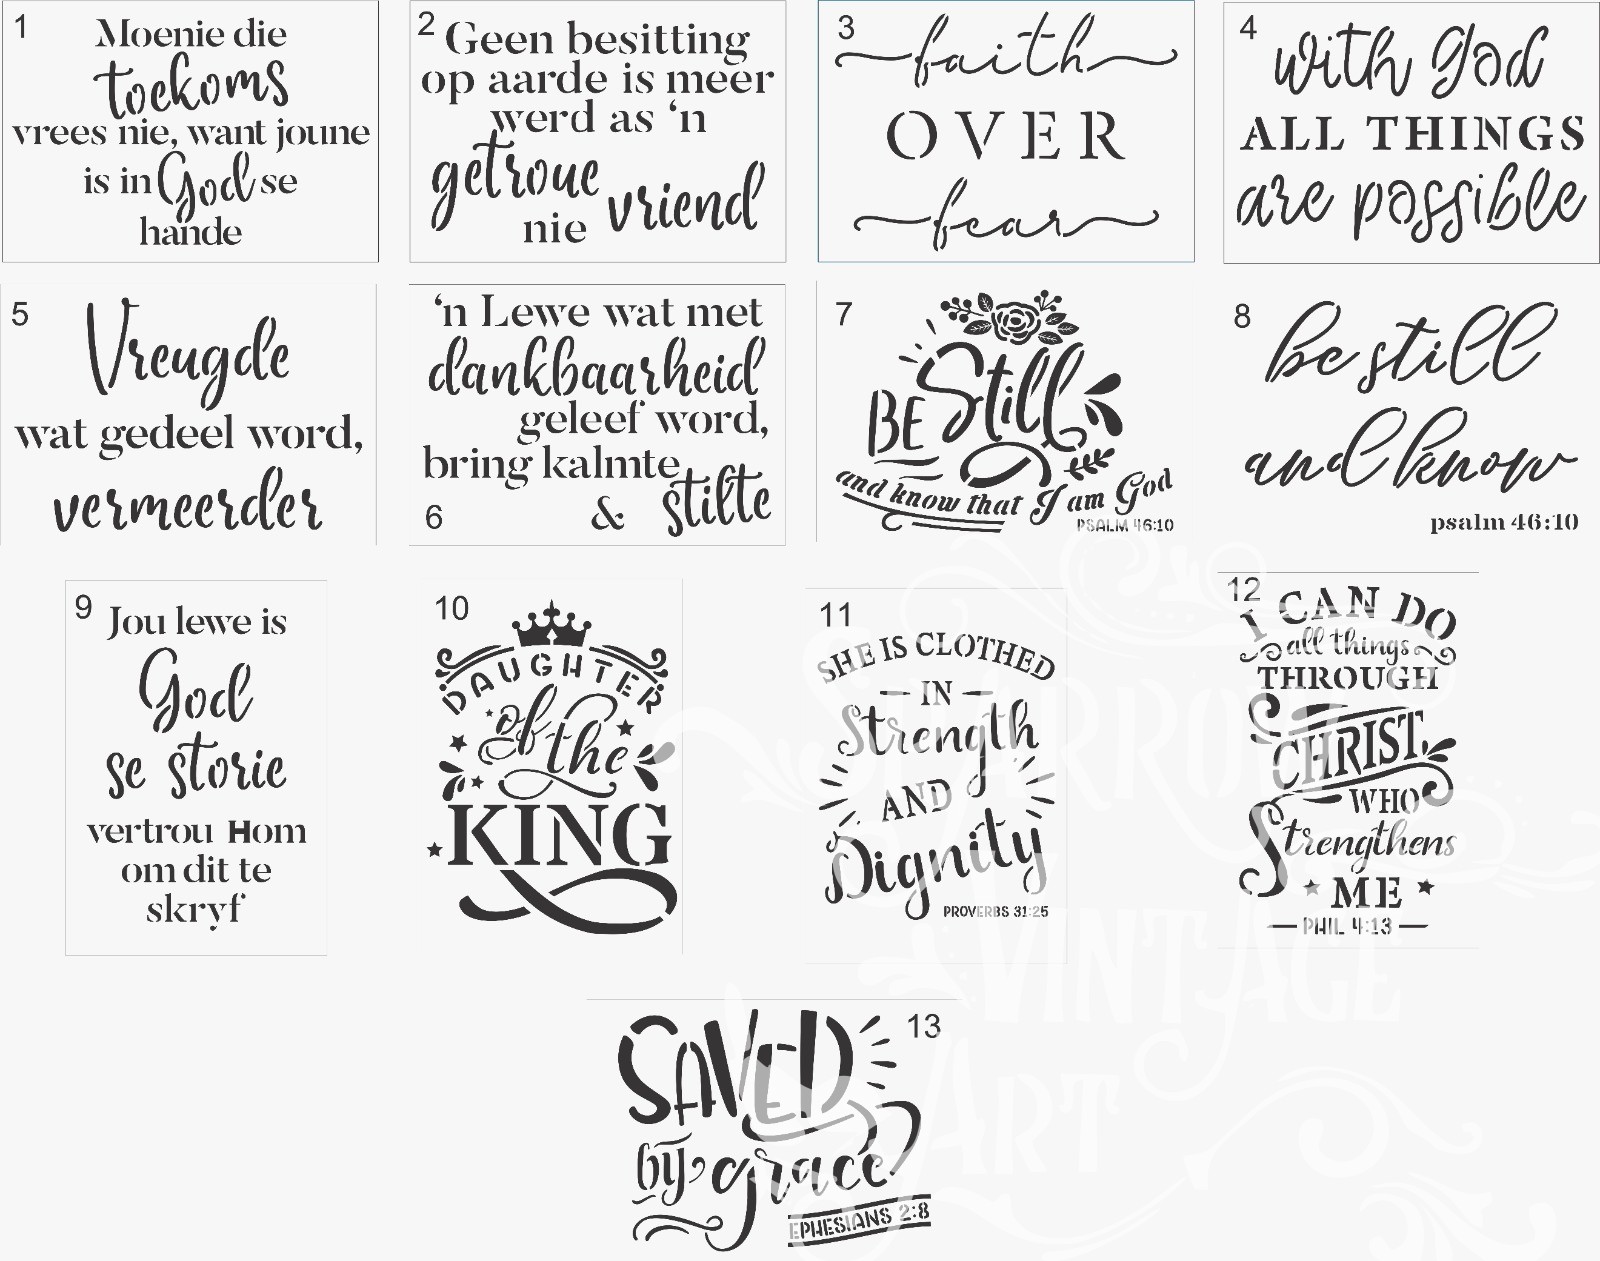 1
Moenie die
toekoms
vrees nie, want joune
is in God se
hande
2
Geen besitting
op aarde is meer
werd as ‘n
getroue vriend
nie
3
faith
OVER
fear
4
with god
ALL THINGS
are possible
5
Vreugde
wat gedeel word,
vermeerder
6
‘n Lewe wat met
dankbaarheid
geleef word,
bring kalmte
& stilte
7
BE Still
and know that I am God
PSALM 46:10
8
be still
and know
psalm 46:10
9
Jou lewe is
God
se storie
vertrou Hom
om dit te
skryf
10
DAUGHTER
of the
KING
11
SHE IS CLOTHED
IN
Strength
AND
Dignity
PROVERBS 31:25
12
I CAN DO
all things
THROUGH
CHRIST
WHO
Strengthens
ME
PHIL 4:13
13
SAVED
by grace
EPHESIANS 2:8
VINTAGE
ART